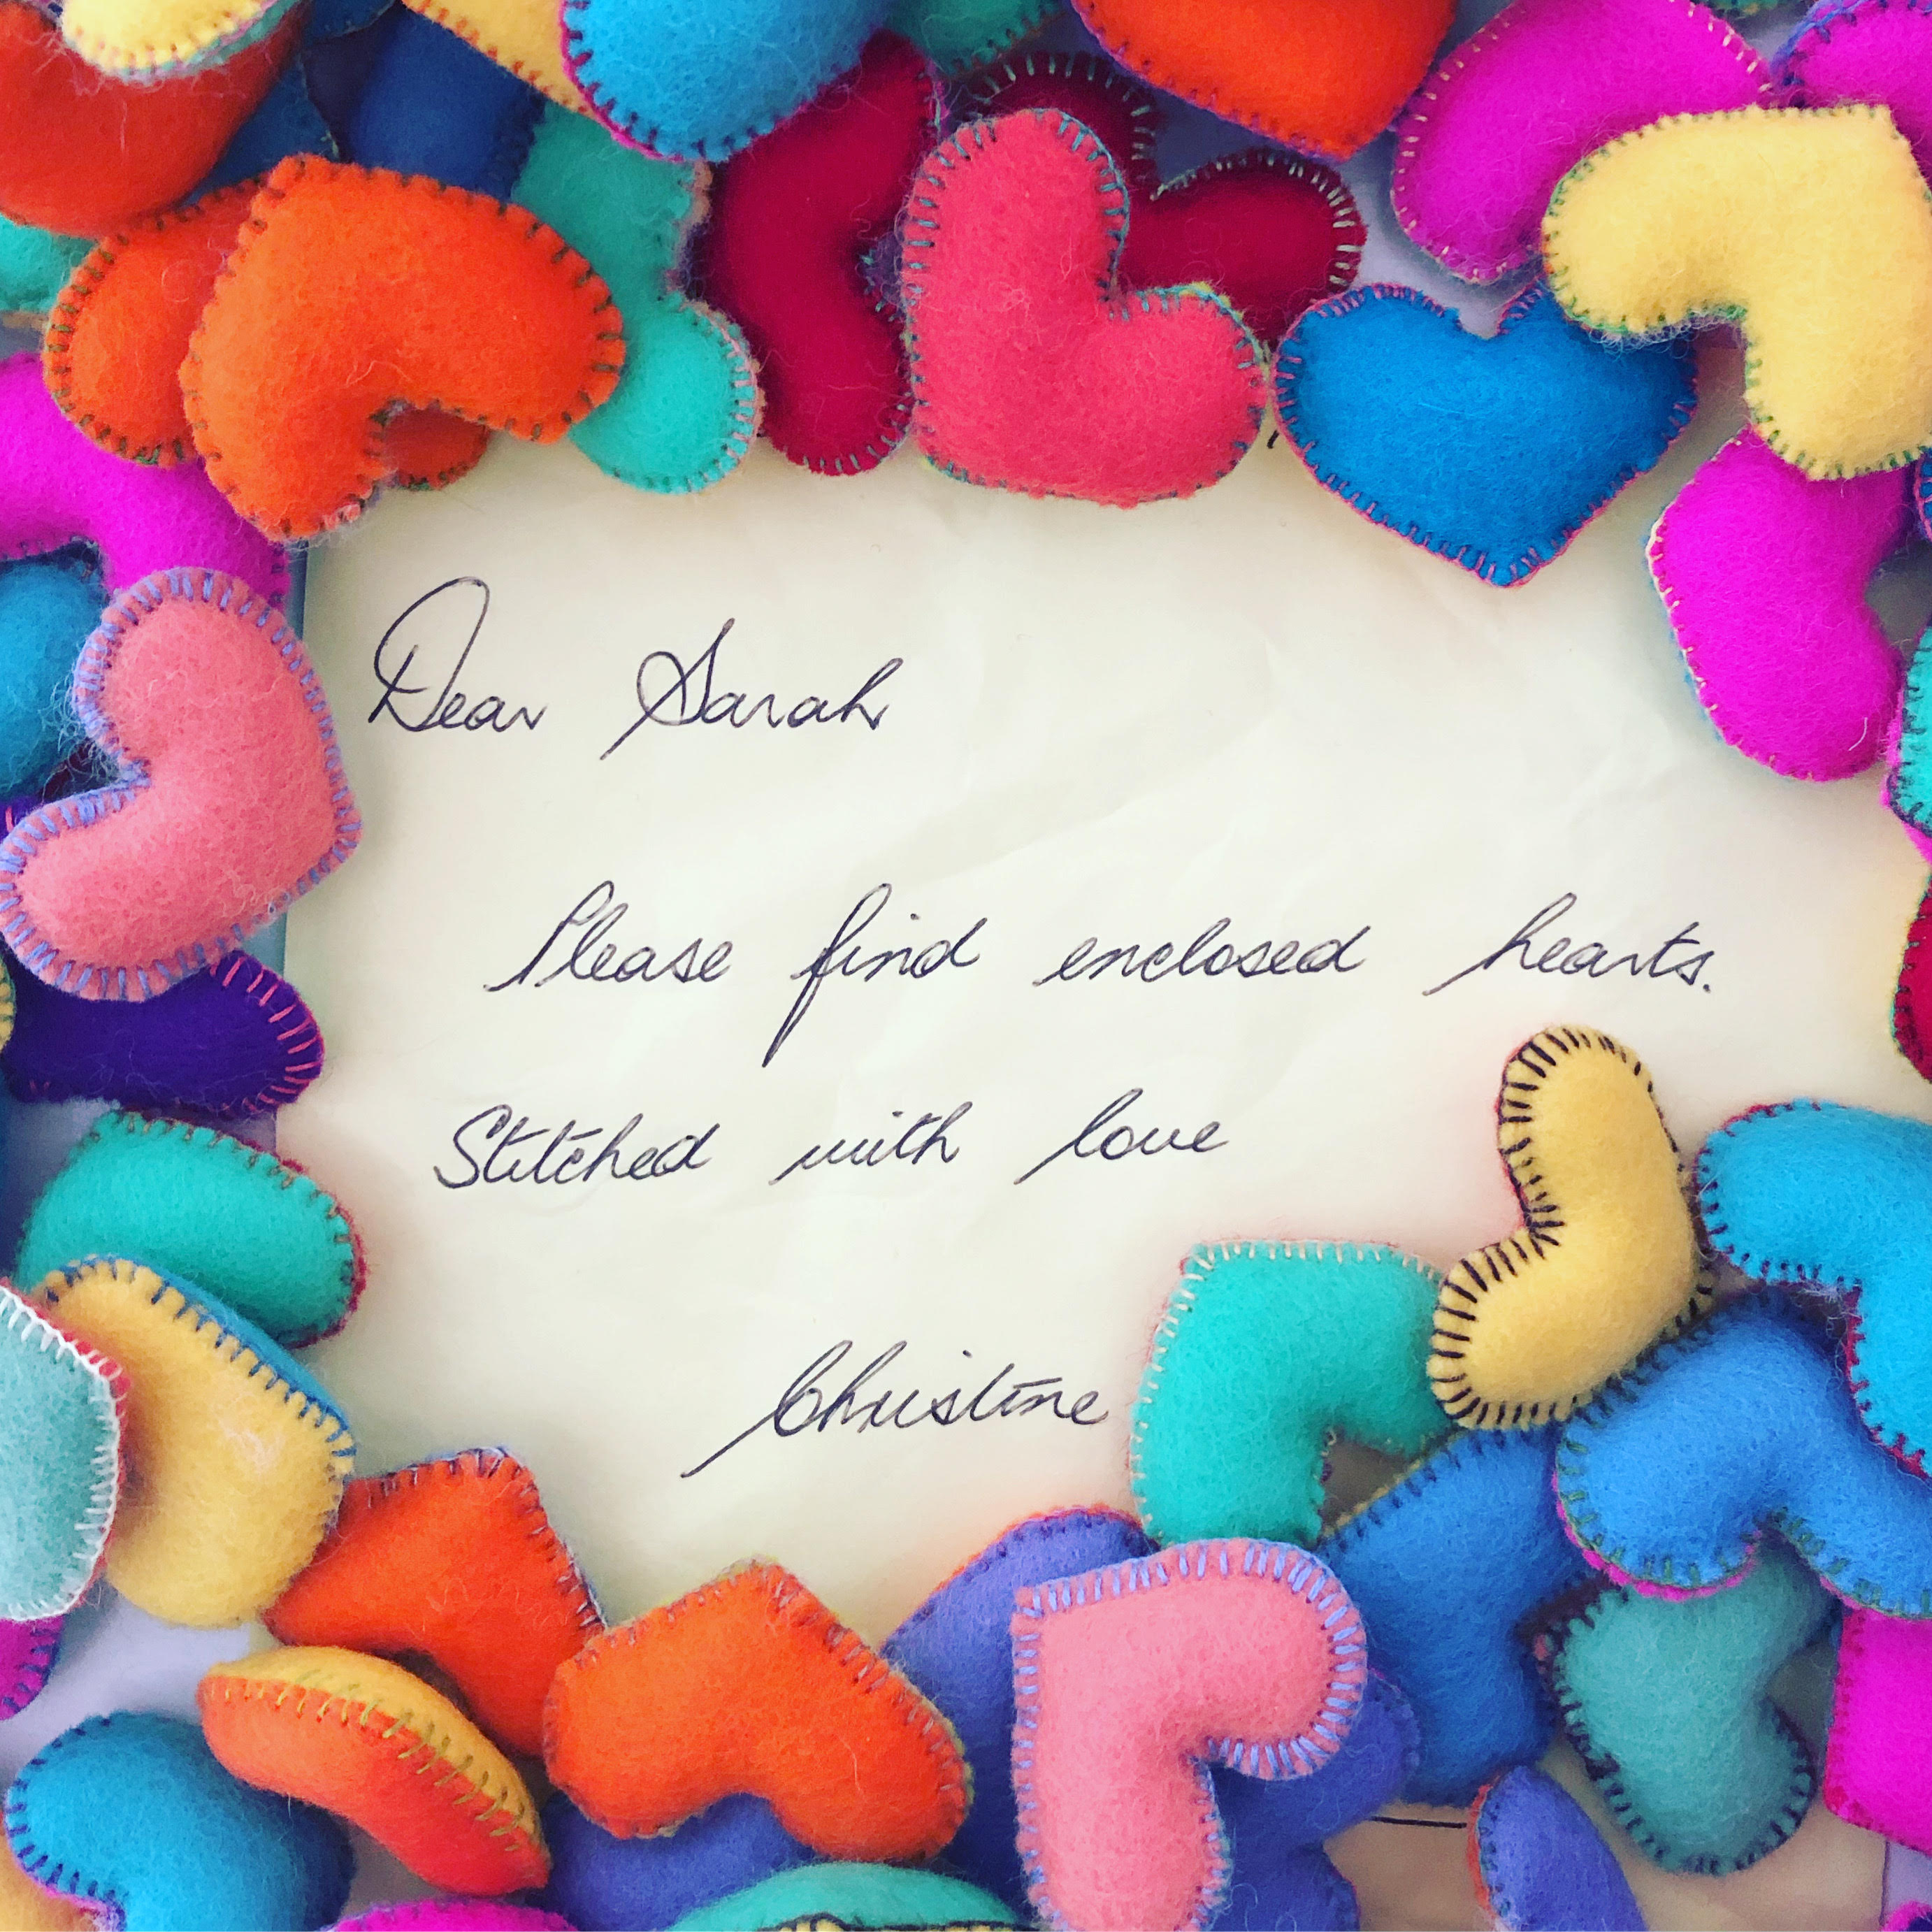 Dear Sarah
Please find enclosed hearts.
Stitched with love
Christine